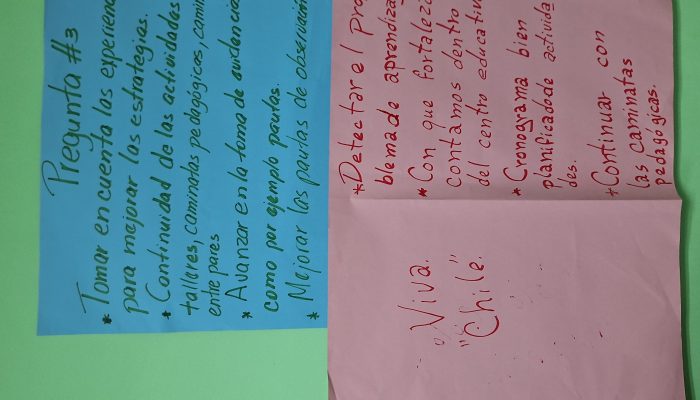 Pregunta #3
* Tomar en cuenta las experienc
para mejorar las estrategias.
* Continuidad de las actividades
talleres, caminatas pedagógicas, camin
entre pares
* Avanzar en la toma de evidencia
como por ejemplo pautas.
* Mejorar las pautas de observación
* Detectar el pro
blema de aprendiza
* Con que fortalez
contamos dentro
del centro educativ
* Cronograma bien
planificado de activida
des.
+ Continuar con
las caminatas
pedagógicas.
Viva.
"Chile."